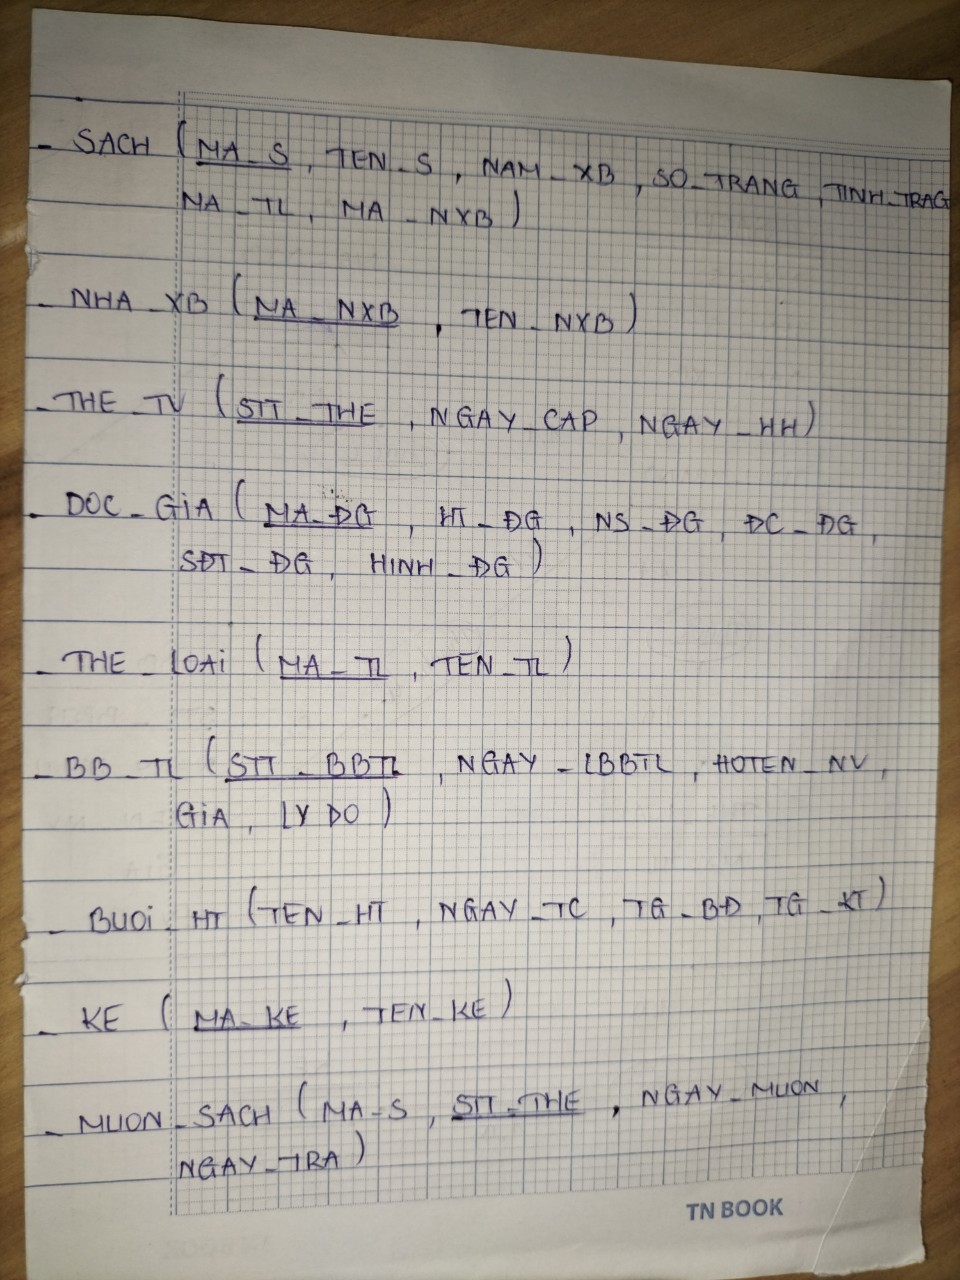 - SACH (MA_S, TEN_S, NAM_XB, SO_TRANG, TINH_TRAG
MA_TL, MA_NXB)
- NHA_XB (MA_NXB, TEN_NXB)
- THE_TV (STT_THE, NGAY_CAP, NGAY_HH)
- DOC_GiA (MA_ĐG, HT_ĐG, NS_ĐG, ĐC_ĐG,
SĐT_ĐG, HINH_ĐG)
- THE_LOAi (MA_TL, TEN_TL)
- BB_TL (STT_BBTL, NGAY_LBBTL, HOTEN_NV,
GiA, LY DO)
- BUOi_HT (TEN_HT, NGAY_TC, TG_BĐ, TG_KT)
- KE (MA_KE, TEN_KE)
- MUON_SACH (MA_S, STT_THE, NGAY_MUON,
NGAY_TRA)
TN BOOK